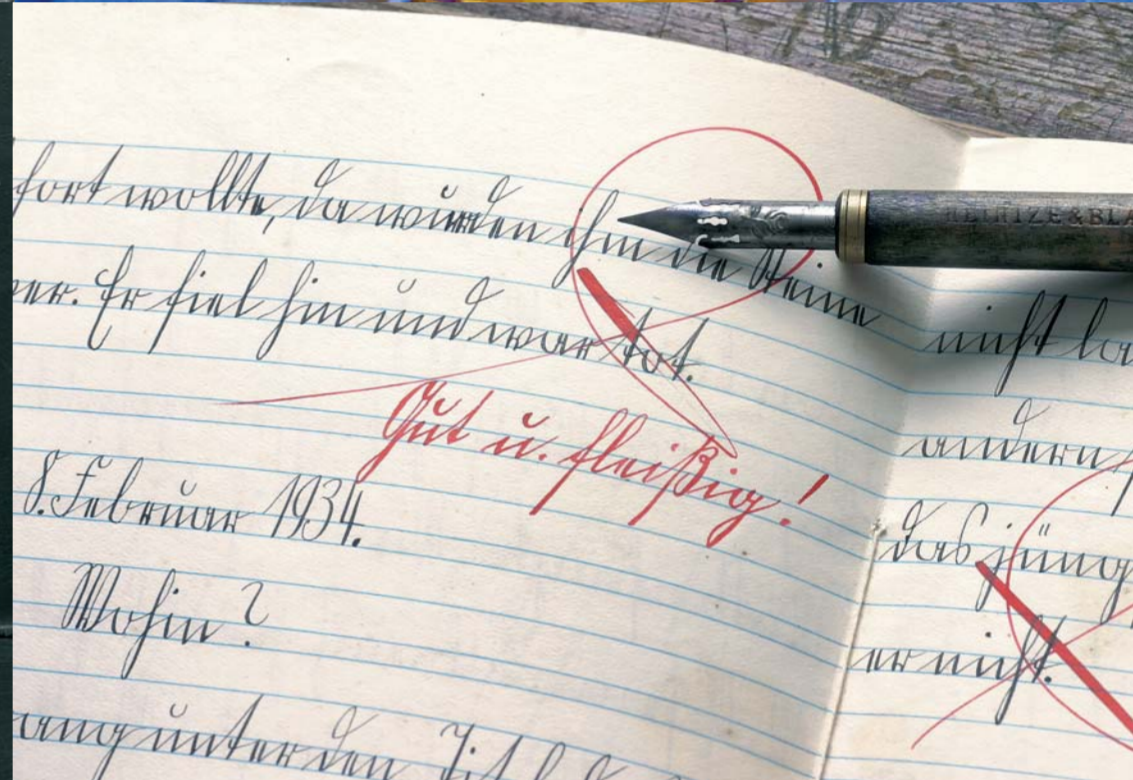 fort wollte, da wurden ihm die Beine
er. Er fiel hin und war tot.
Gut u. fleißig!
8. Februar 1934.
Wohin?
ang unter den
HEINTZE & BLA
nicht la
andern
das jüng
er nicht.